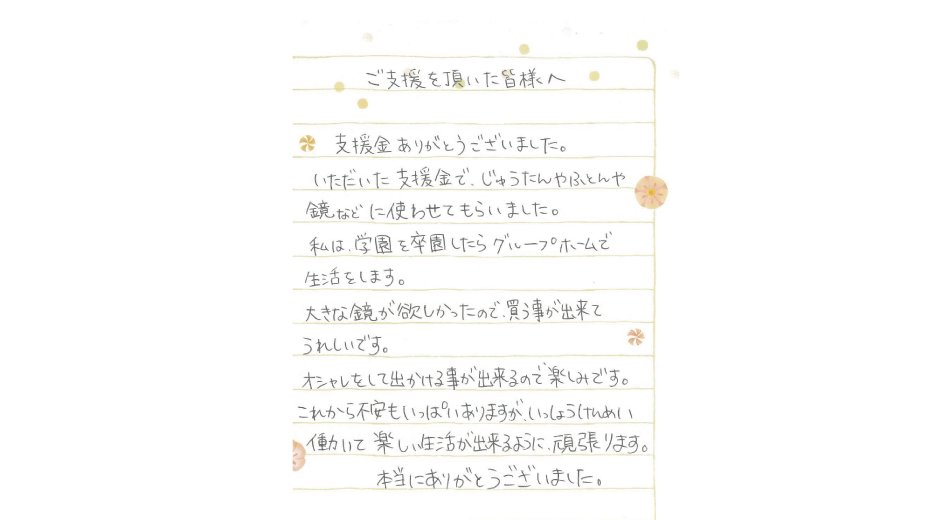 ご支援を頂いた皆様へ
支援金ありがとうございました。
いただいた支援金で、じゅうたんやふとんや
鏡などに使わせてもらいました。
私は、学園を卒園したらグループホームで
生活をします。
大きな鏡が欲しかったので、買う事が出来て
うれしいです。
オシャレをして出かける事が出来るので楽しみです。
これから不安もいっぱいありますが、いっしょうけんめい
働いて楽しい生活が出来るように、頑張ります。
本当にありがとうございました。